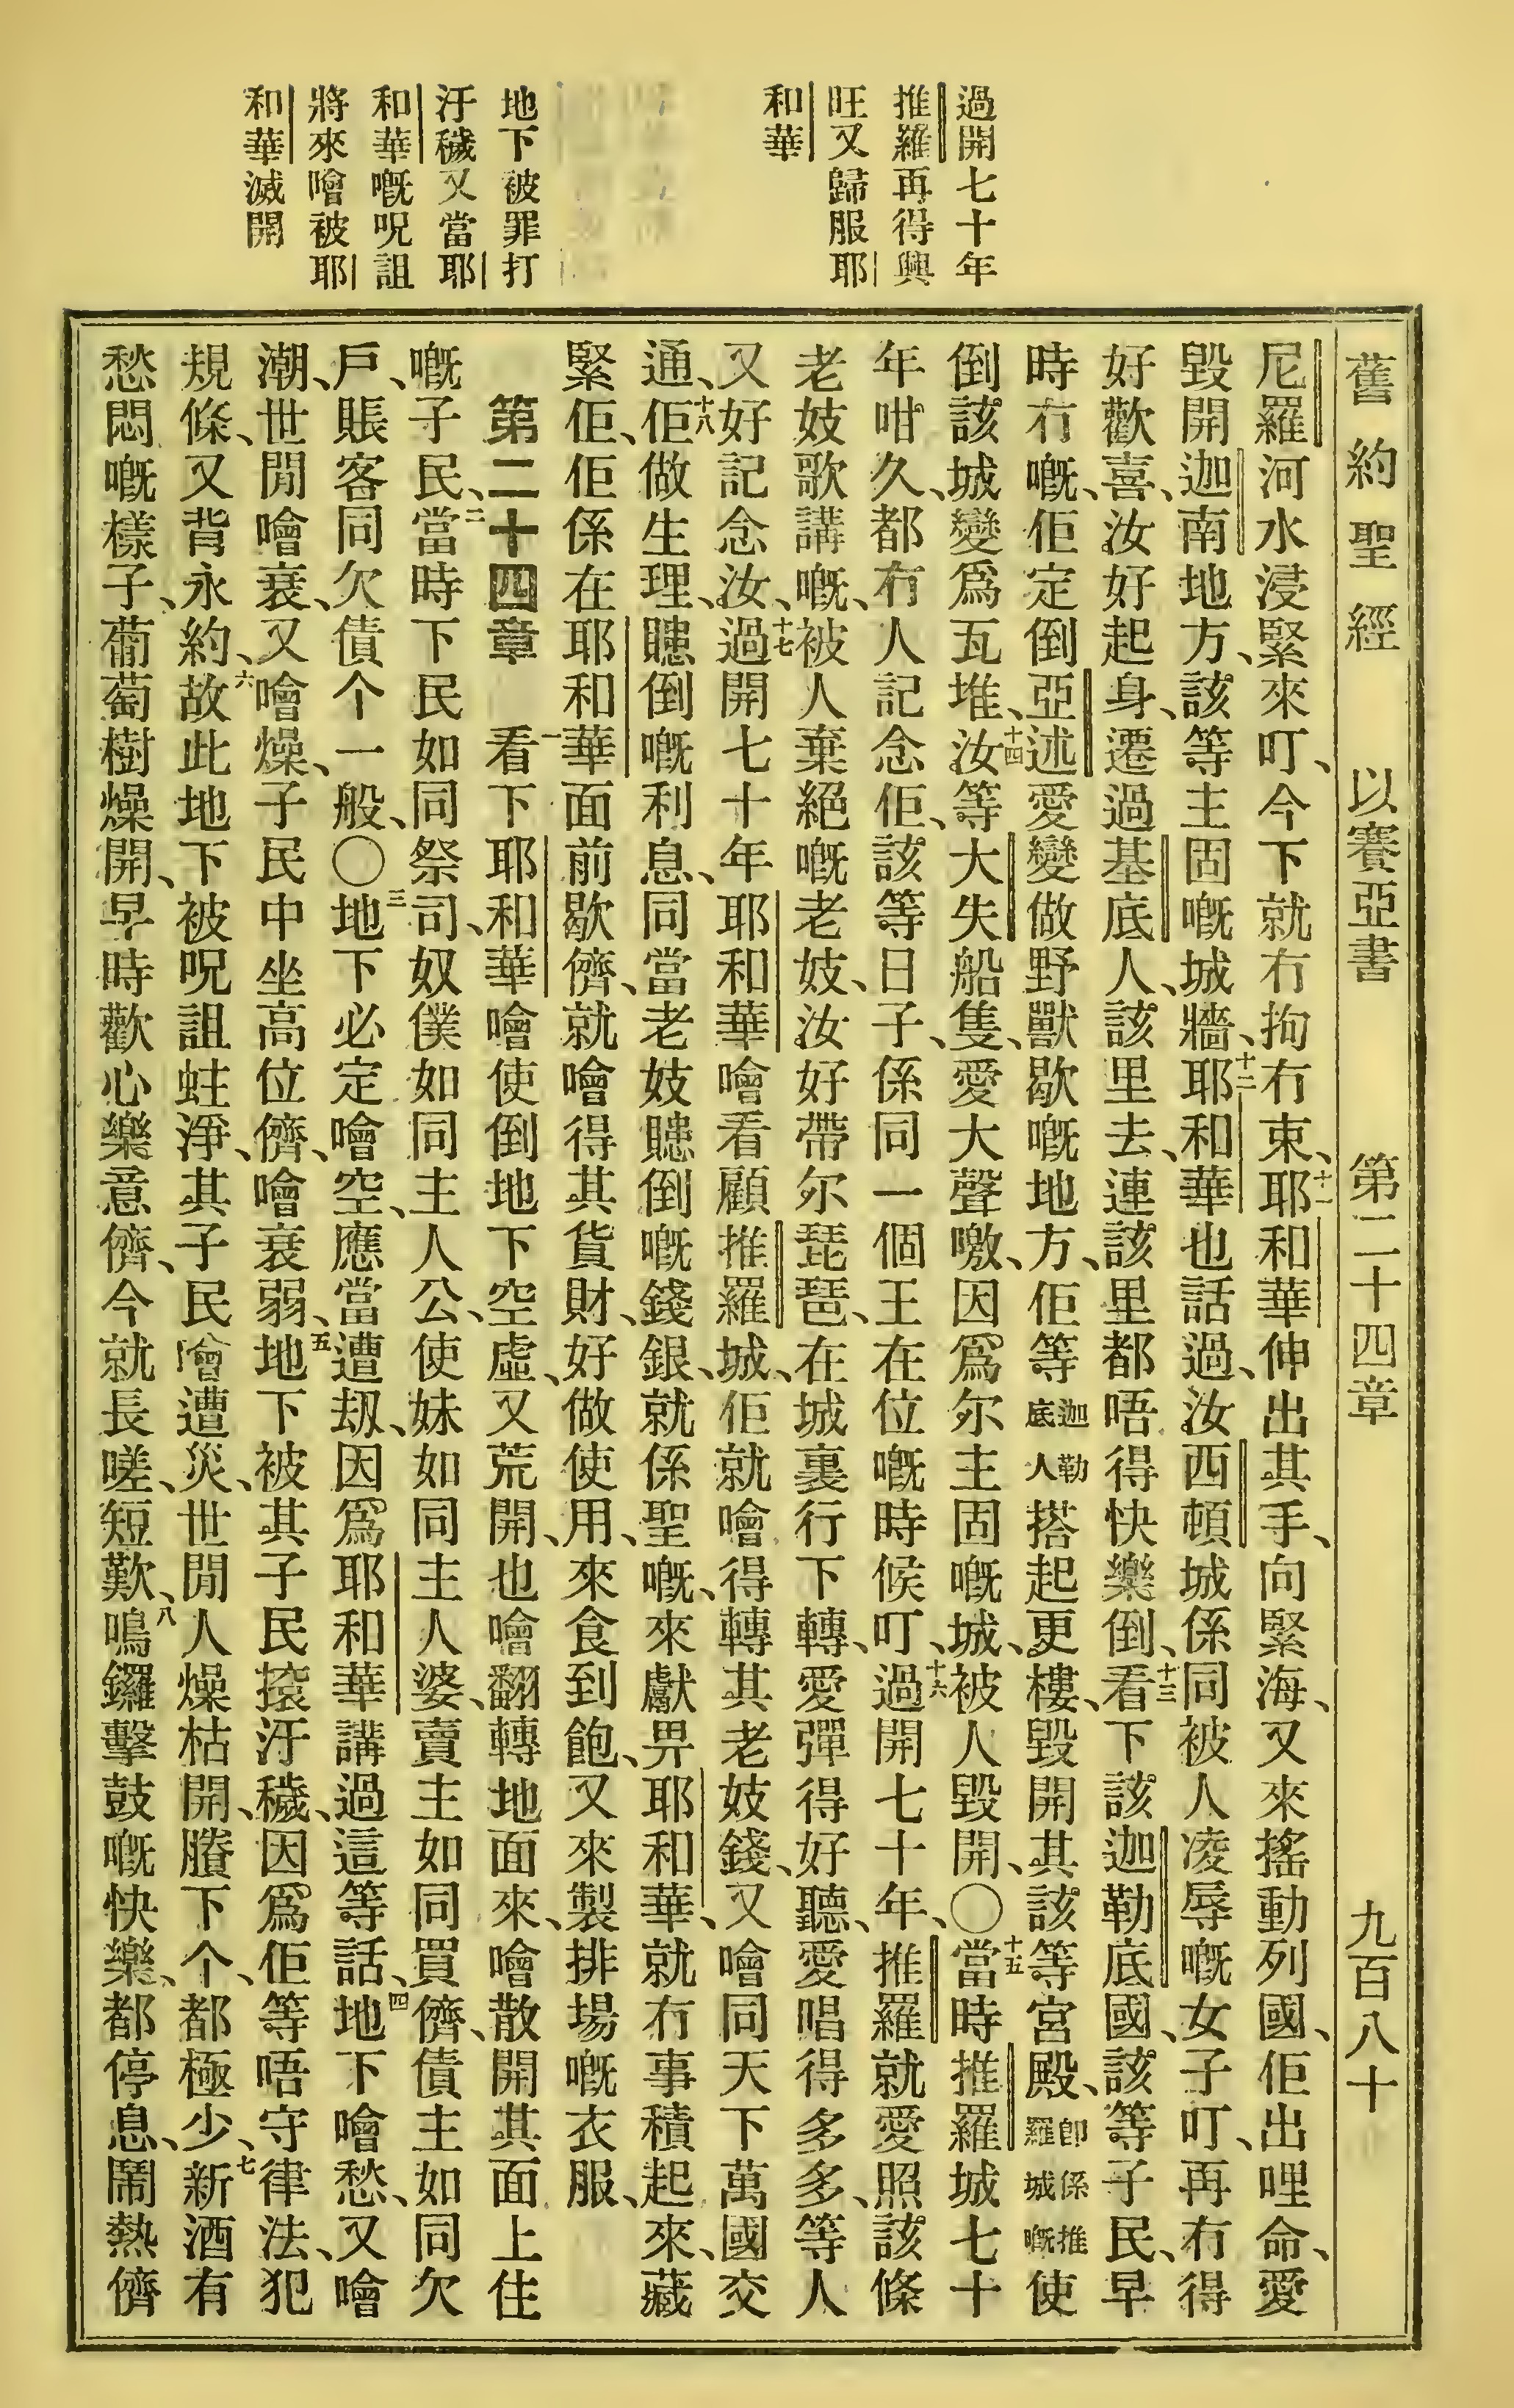 舊約聖經 以賽亞書 第二十四章 九百八十
過開七十年
推羅再得興
旺又歸服耶
和華
地下被罪打
汙穢又當耶
和華嘅呪詛
將來噲被耶
和華滅開
尼羅河水浸緊來叮、今下就冇拘冇束、十一耶和華伸出其手、向緊海、又來搖動列國、佢出哩命、愛
毀開迦南地方、該等主固嘅城牆、十二耶和華也話過、汝西頓城係同被人凌辱嘅女子叮、再冇得
好歡喜、汝好起身、遷過基底人、該里去、連該里都唔得快樂倒、十三看下該迦勒底國、該等子民、早
時冇嘅、佢定倒亞述愛變做野獸歇嘅地方、佢等迦勒底人搭起更樓、毀開其該等宮殿、卽係推羅城嘅使
倒該城變爲瓦堆、十四汝等大失船隻、愛大聲噭、因爲尔主固嘅城、被人毀開、〇十五當時推羅城七十
年咁久、都冇人記念佢、該等日子、係同一個王在位嘅時候叮、十六過開七十年、推羅就愛照該條
老妓歌講嘅、被人棄絕嘅老妓、汝好帶尔琵琶、在城裏行下轉、愛彈得好聽、愛唱得多多、等人
又好記念汝、十七過開七十年、耶和華噲看顧推羅城、佢就噲得轉其老妓錢、又噲同天下萬國交
通、十八佢做生理、賺倒嘅利息、同當老妓賺倒嘅錢銀、就係聖嘅、來獻畀耶和華、就冇事積起來、藏
緊佢、佢係在耶和華面前歇儕、就噲得其貨財、好做使用、來食到飽、又來製排場嘅衣服、
第二十四章 一看下耶和華噲使倒地下空虛、又荒開、也噲翻轉地面來、噲散開其面上住
嘅子民、二當時下民如同祭司、奴僕如同主人公、使妹如同主人婆、賣主如同買儕、債主如同欠
戶、賬客同欠債个一般、〇三地下必定噲空、應當遭刼、因爲耶和華講過這等話、四地下噲愁、又噲
潮、世閒噲衰、又噲燥、子民中坐高位儕、噲衰弱、五地下被其子民㨰汙穢、因爲佢等唔守律法、犯
規條、又背永約、六故此地下被呪詛蛀淨、其子民噲遭災、世閒人燥枯開、賸下个、都極少、七新酒有
愁悶嘅樣子、葡萄樹燥開、早時歡心樂意儕、今就長嗟短歎、八鳴鑼擊鼓嘅快樂、都停息、鬧熱儕